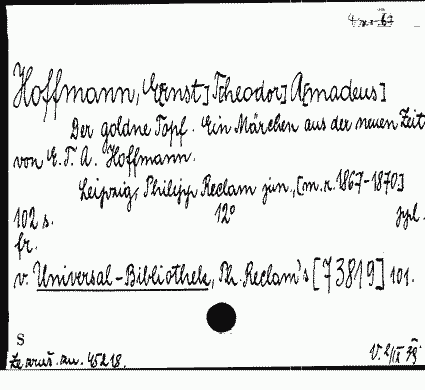 Hoffmann, E[rnst] T[heodor] A[madeus]
Der goldne Topf. Ein Märchen aus der neuen Zeit
von E. T. A. Hoffmann.
Leipzig, Philipp Reclam jun., [m.r. 1867-1870]
102 s. 12°
fr.
v. Universal-Bibliothek, Ph. Reclam's [73819] 101.
S
45218.